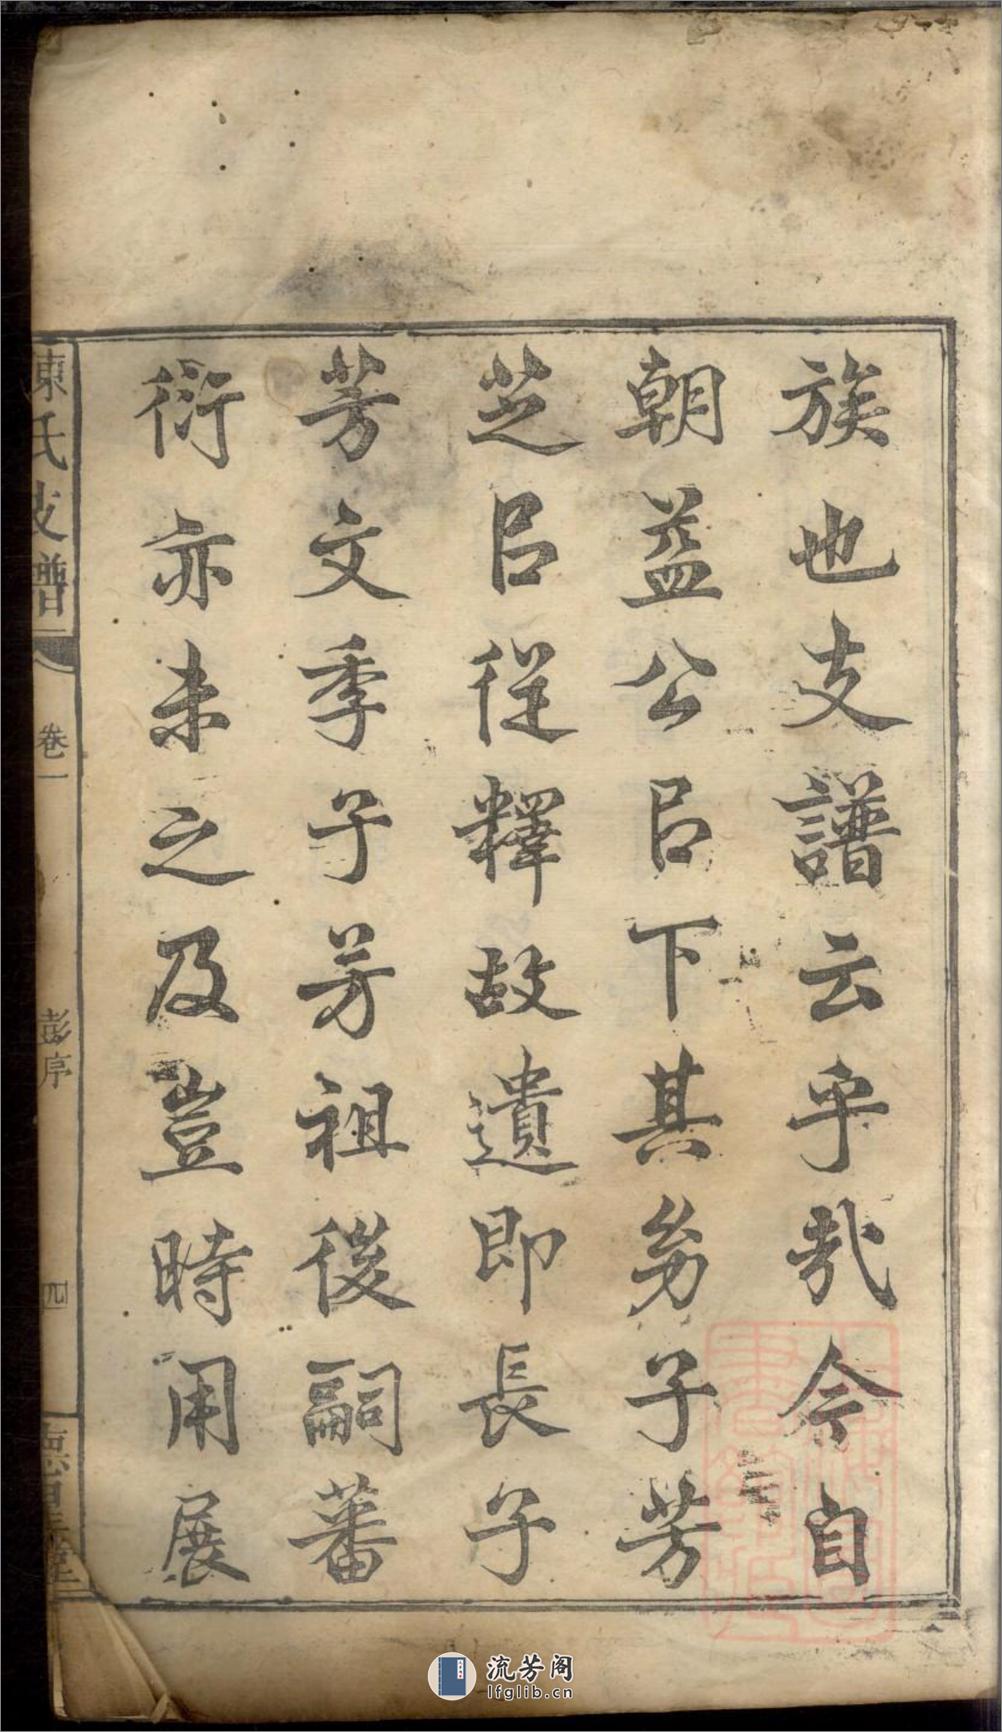 族也支譜云乎哉今自
朝益公㠯下其㓜子芳
芝㠯從釋故遺即長子
芳文季子芳祖後嗣蕃
衍亦未之及豈時用展
陳氏支譜
卷一
彭序
四
流芳阁
lfglib.cn